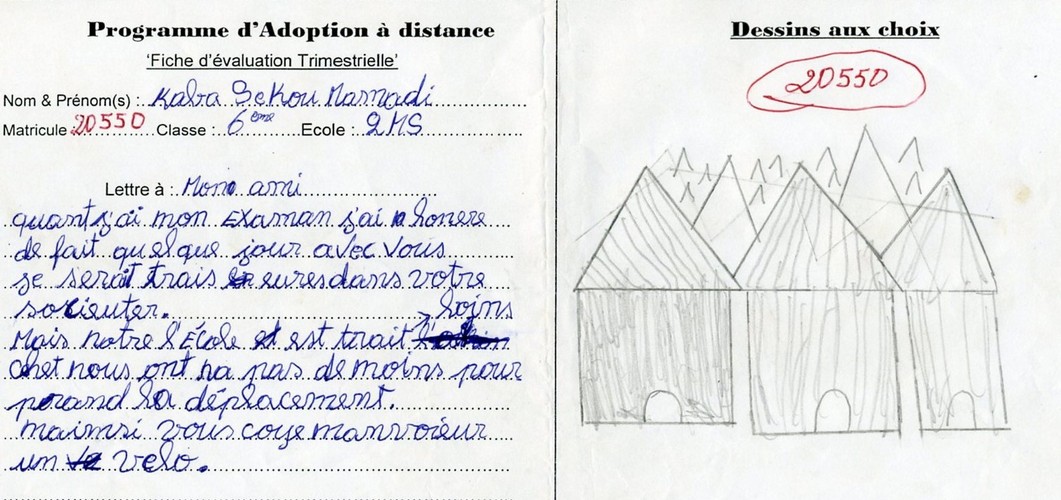 Programme d'Adoption à distance
'Fiche d'évaluation Trimestrielle'
Nom & Prénom(s) : Kaba Sekou Mamadi
Matricule 20550 Classe : 6ème Ecole : 2MS
Lettre à : Mon ami
quant j'ai mon Examan j'ai honere
de fait quelque jour avec vous
je serait trais eures dans votre
socieuter.
loins
Mais notre l'École est trait
chet nous ont na pas de moins pour
prand la déplacement.
maimsi vous coye manvoieur
un velo.
Dessins aux choix
20550